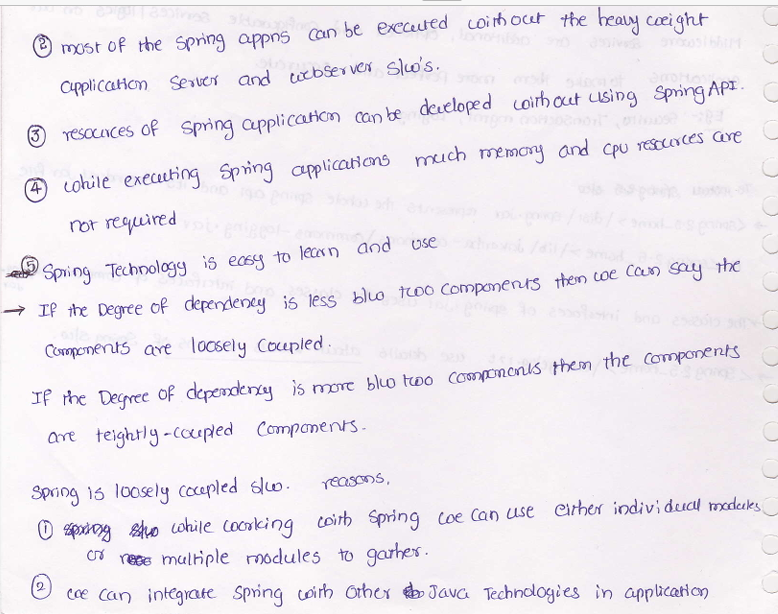 ② most of the Spring appns can be executed without the heavy weight
application Server and webserver s/w's.
③ resources of Spring application can be developed without using Spring API.
④ while executing Spring applications much memory and cpu resources are
not required
⑤ Spring Technology is easy to learn and use
→ If the Degree of dependency is less b/w two components then we can say the
Components are loosely Coupled.
If the Degree of dependency is more b/w two components then the components
are teightly-coupled Components.
Spring is loosely coupled s/w. reasons.
① while working with Spring we can use either individual modules
or multiple modules to gather.
② we can integrate Spring with Other Java Technologies in application